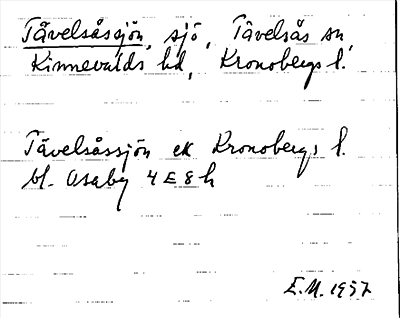 Tävelsåssjön, sjö, Tävelsås sn,
Kinnevalds hd, Kronobergs l.
Tävelsåssjön ek Kronobergs l.
bl. Osaby 4 E 8 h
E.M. 1937